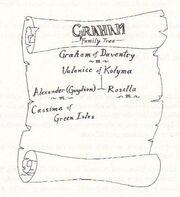 GRAHAM
Family Tree
Graham of Daventry
~m~
Valanice of Kolyma
Alexander (Gwydion) Rosella
~m~
Cassima of
Green Isles